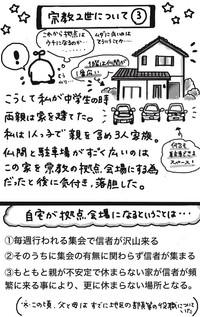 宗教2世について③
これから拠点は
ウチになるのか…
ムダに広いのは
そういうことか…
1階は仏間が
1番広い
何台も
車を停める
スペース!
こうして私が中学生の時
両親は家を建てた。
私は1人っ子で親を含め3人家族。
仏間と駐車場がすごく広いのは
この家を宗教の拠点、会場にする為
だったと後に気付き、落胆した。
自宅が拠点、会場になるということは…
①毎週行われる集会で信者が沢山来る
②そのうちに集会の有無に関わらず信者が集まる
③もともと親が不安定で休まらない家が信者が頻
繁に来る事により、更に休まらない場所となる。
(※この頃、父と母はすでに地区の部長等の役職についていた)